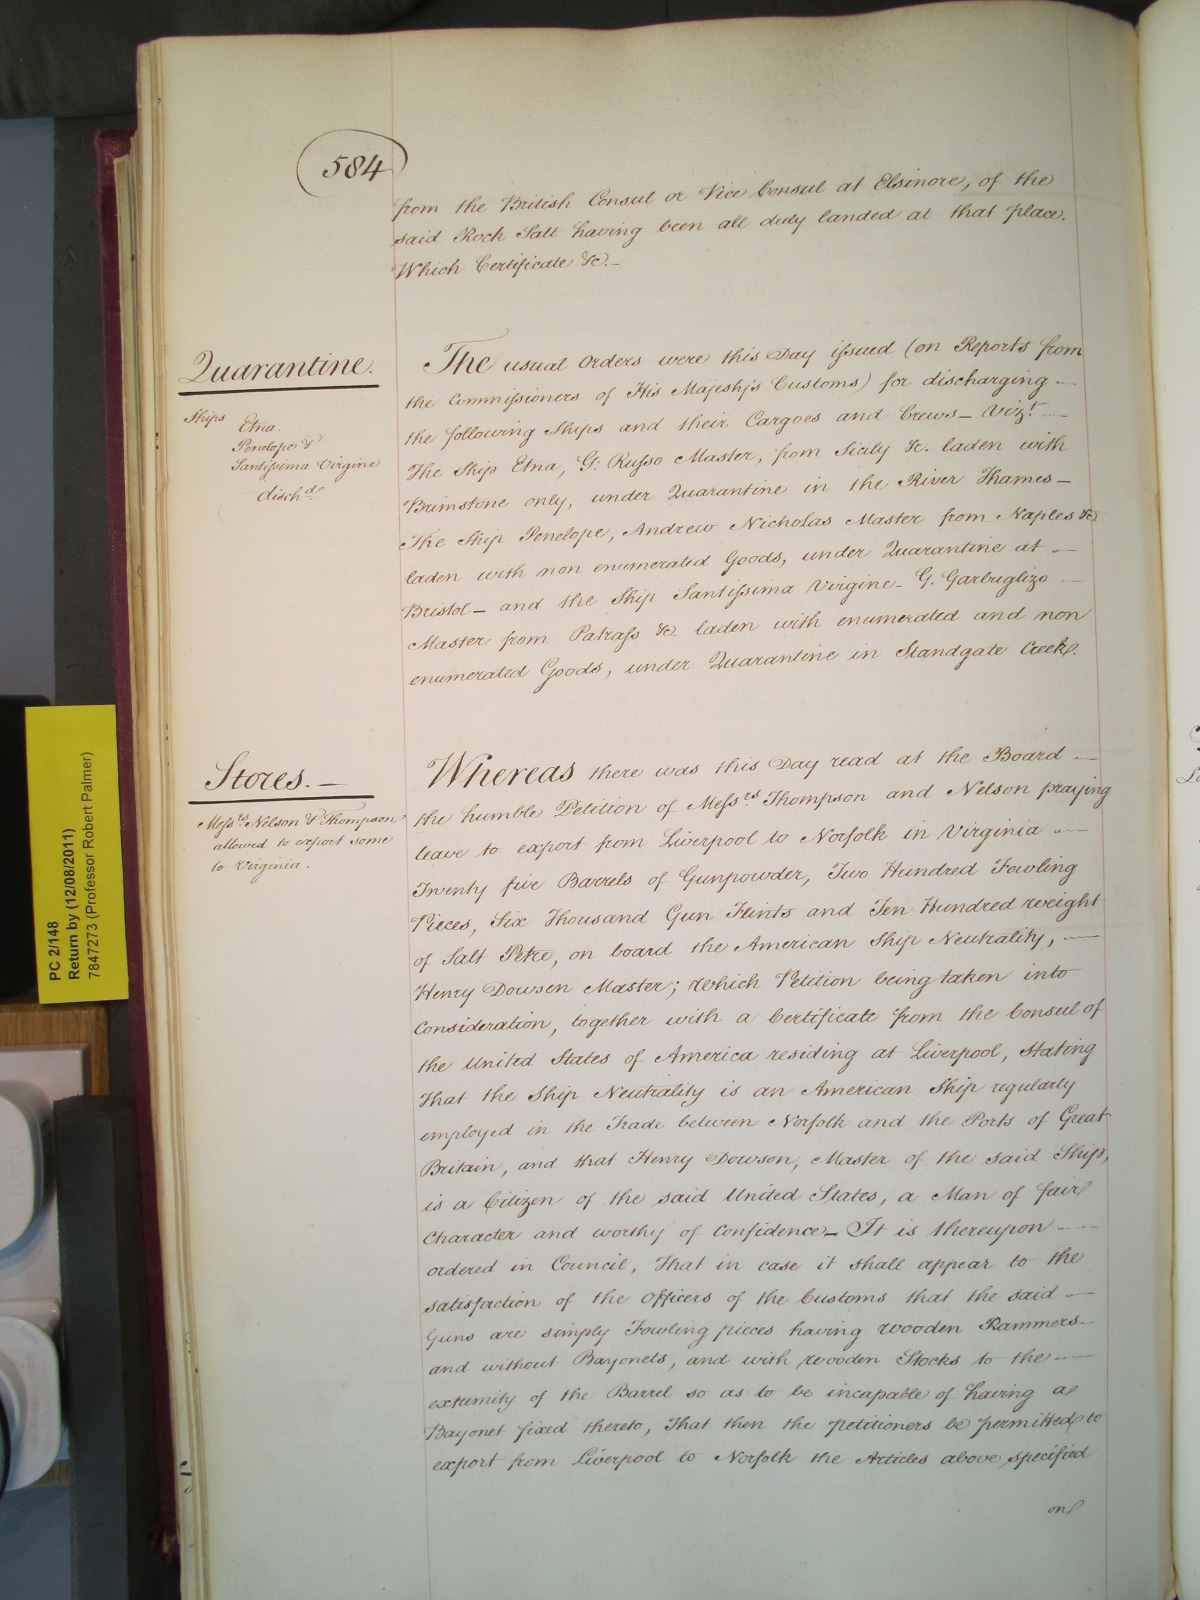 584
from the British Consul or Vice Consul at Elsinore, of the
said Rock Salt having been all duly landed at that place.
Which Certificate &c. —
Quarantine.
Ships Etna.
Penelope &
Santissima Virgine
disch.d
The usual Orders were this Day issued (on Reports from
the Commissioners of His Majesty's Customs) for discharging —
the following Ships and their Cargoes and Crews — Vizt. —
The Ship Etna, G: Russo Master, from Sicily &c. laden with
Brimstone only, under Quarantine in the River Thames —
The Ship Penelope, Andrew Nicholas Master from Naples &c
laden with non enumerated Goods, under Quarantine at —
Bristol — and the Ship Santissima Virgine — G. Garbriglizo —
Master from Patrass &c. laden with enumerated and non
enumerated Goods, under Quarantine in Standgate Creek.
Stores. —
Messrs. Nelson & Thompson
allowed to export some
to Virginia.
Whereas there was this Day read at the Board —
the humble Petition of Messrs. Thompson and Nelson praying
leave to export from Liverpool to Norfolk in Virginia —
Twenty five Barrels of Gunpowder, Two Hundred Fowling
Pieces, Six Thousand Gun Flints and Ten Hundred weight
of Salt Petre, on board the American Ship Neutrality, —
Henry Dowsen Master; Which Petition being taken into
Consideration, together with a Certificate from the Consul of
the United States of America residing at Liverpool, stating
that the Ship Neutrality is an American Ship regularly
employed in the Trade between Norfolk and the Ports of Great
Britain, and that Henry Dowson, Master of the said Ship,
is a Citizen of the said United States, a Man of fair
Character and worthy of Confidence — It is thereupon —
ordered in Council, That in case it shall appear to the
satisfaction of the Officers of the Customs that the said —
Guns are simply Fowling pieces having wooden Rammers —
and without Bayonets, and with wooden Stocks to the —
extremity of the Barrel so as to be incapable of having a
Bayonet fixed thereto, That then the petitioners be permitted to
export from Liverpool to Norfolk the Articles above specified
on
PC 2/148
Return by (12/08/2011)
7847273 (Professor Robert Palmer)